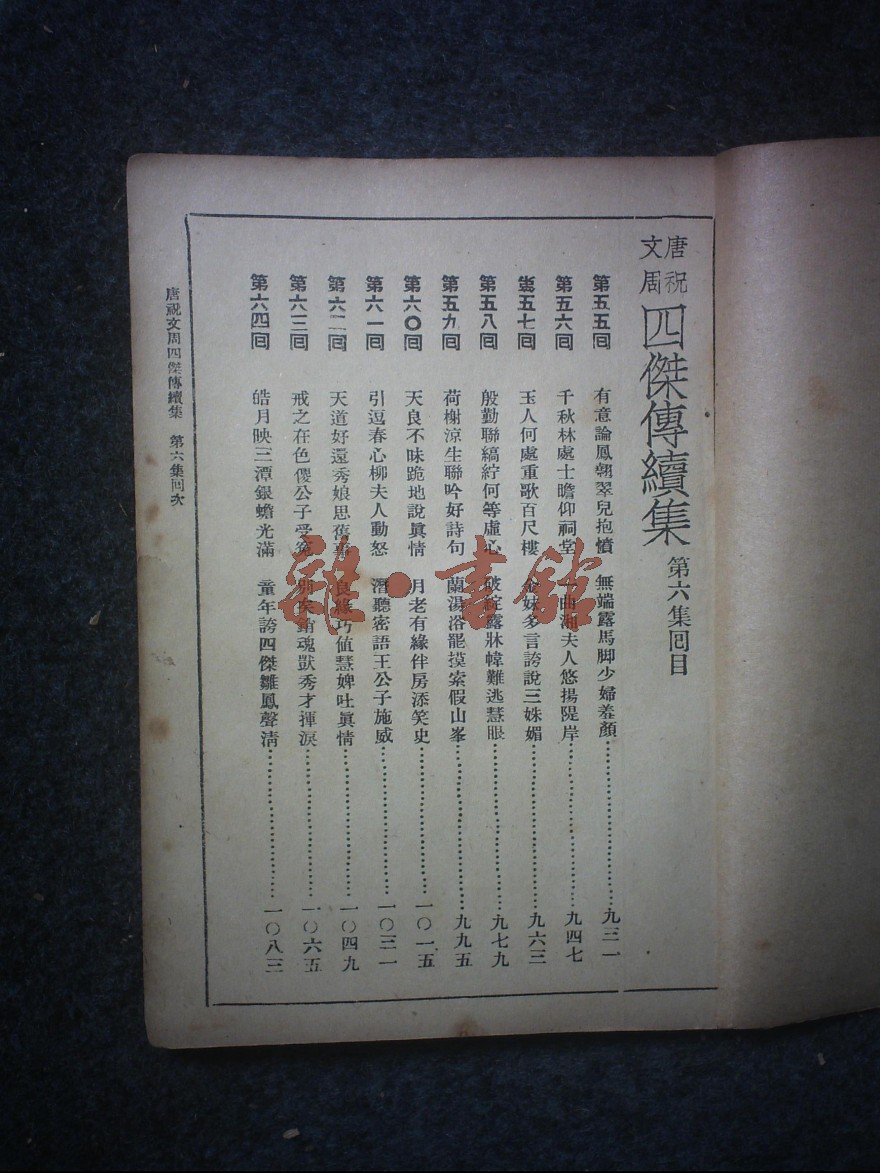 唐祝文周四傑傳續集 第六集回目
第五五回 有意論鳳翱翠兒抱憤 無端露馬脚少婦羞顏 九三一
第五六回 千秋林處士瞻仰祠堂 一曲湘夫人悠揚隄岸 九四七
第五七回 玉人何處重歌百尺樓 金妹多言誇說三姝媚 九六三
第五八回 殷勤聯縞紵何等虛心 破綻露牀幃難逃慧眼 九七九
第五九回 荷榭涼生聯吟好詩句 蘭湯浴罷摸索假山峯 九九五
第六〇回 天良不昧跪地說眞情 月老有緣伴房添笑史 一〇一五
第六一回 引逗春心柳夫人動怒 潛聽密語王公子施威 一〇三一
第六二回 天道好還秀娘思舊事 良緣巧値慧婢吐眞情 一〇四九
第六三回 戒之在色儍公子受寃 別矣銷魂獃秀才揮淚 一〇六五
第六四回 皓月映三潭銀蟾光滿 童年誇四傑雛鳳聲淸 一〇八三
唐祝文周四傑傳續集 第六集回次
雜·書館